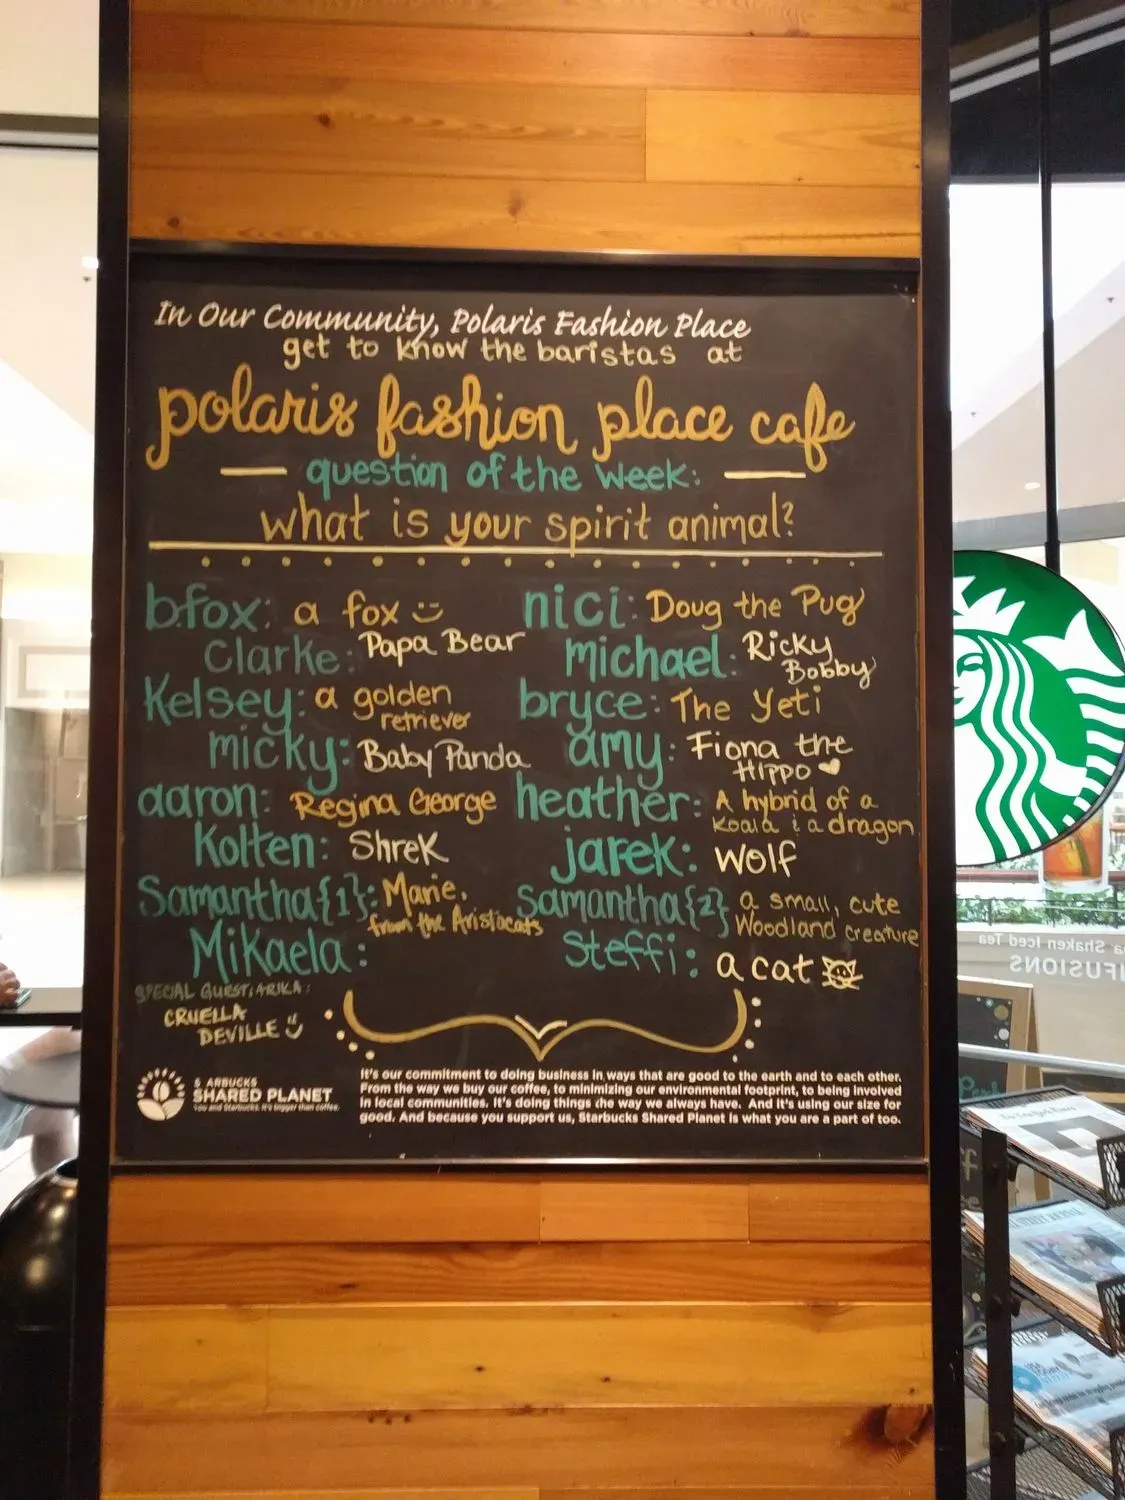 In Our Community, Polaris Fashion Place
get to know the baristas at
polaris fashion place cafe
question of the week:
what is your spirit animal?
b.fox: a fox
Clarke: Papa Bear
Kelsey: a golden
retriever
micky: Baby Panda
aaron: Regina George
Kolten: Shrek
Samantha{1}: Marie,
from the Aristocats
Mikaela:
SPECIAL GUEST, ARIKA:
CRUELLA
DEVILLE
nici: Doug the Pug
michael: Ricky
Bobby
bryce: The Yeti
amy: Fiona the
Hippo
heather: A hybrid of a
Koala & a dragon
jarek: Wolf
Samantha{2} a small, cute
Woodland creature
Steffi: a cat
S ARBUCKS
SHARED PLANET
You and Starbucks. It's bigger than coffee.
It's our commitment to doing business in ways that are good to the earth and to each other.
From the way we buy our coffee, to minimizing our environmental footprint, to being involved
in local communities. It's doing things the way we always have. And it's using our size for
good. And because you support us, Starbucks Shared Planet is what you are a part of too.
Shaken Iced Tea
FUSIONS